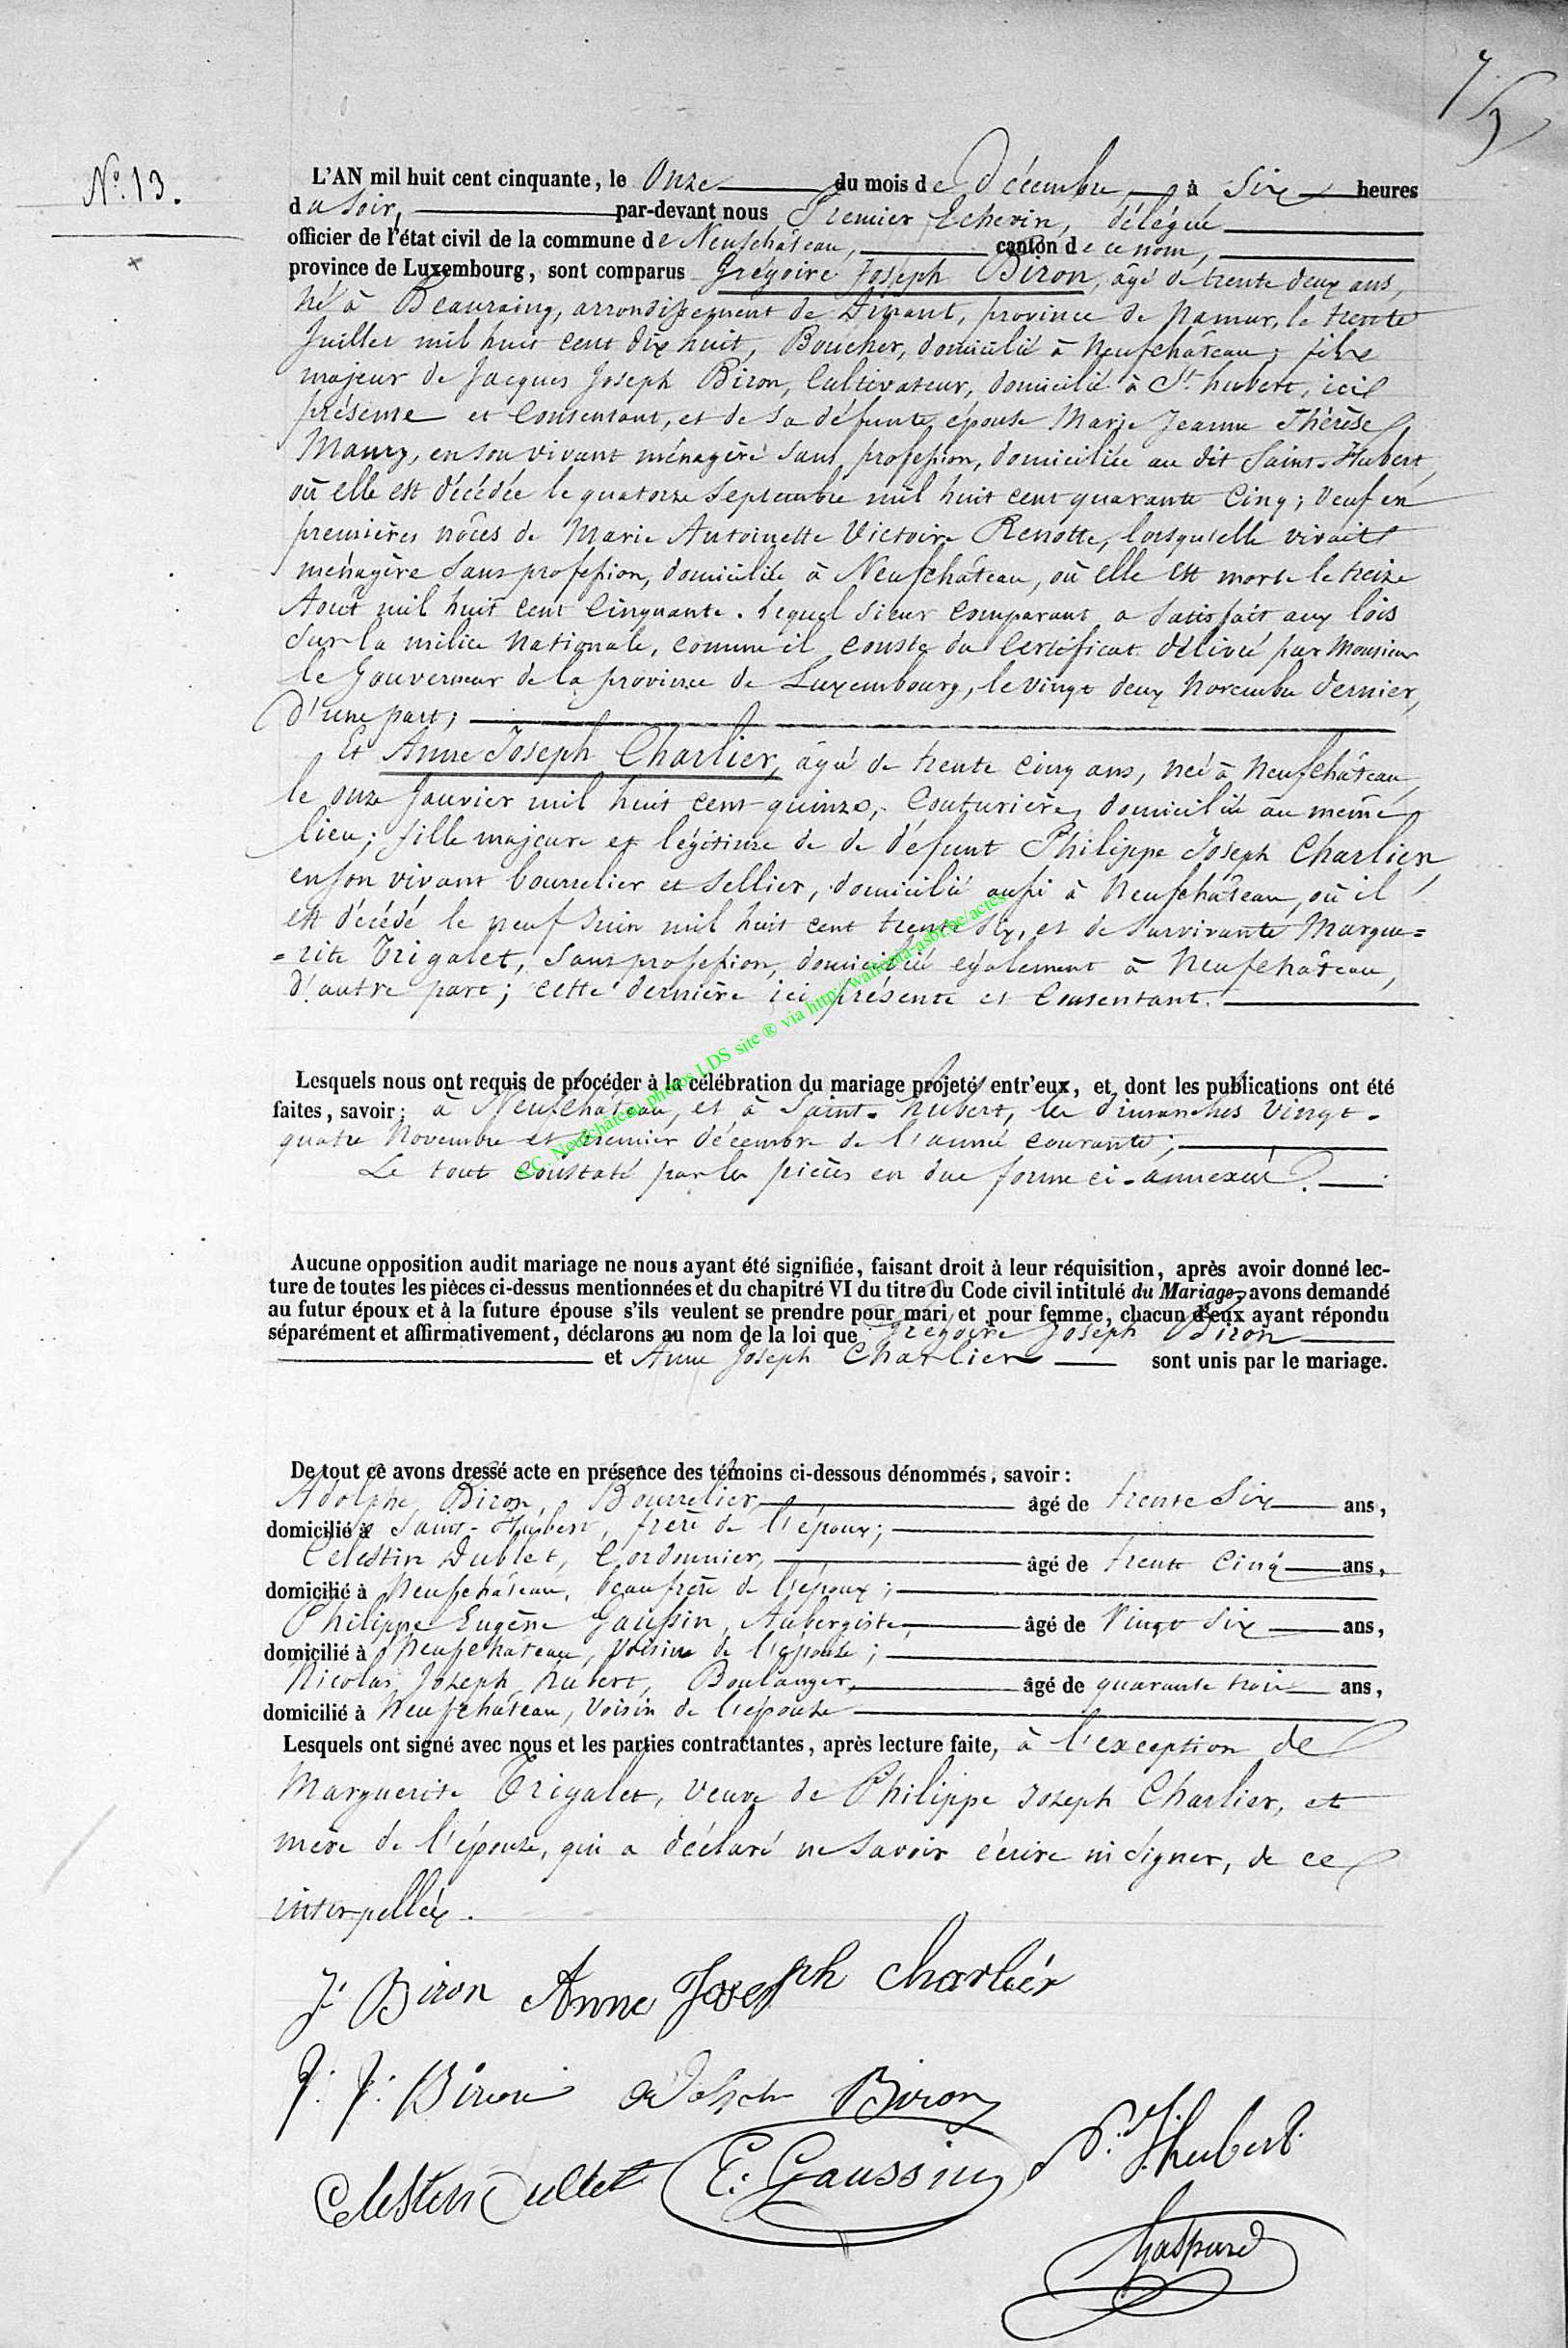 N.° 13.
L'AN mil huit cent cinquante, le Onze du mois de Décembre, à Six heures
du soir, par-devant nous Premier Echevin, délégué
officier de l'état civil de la commune de Neufchâteau, canton de ce nom,
province de Luxembourg, sont comparus Grégoire Joseph Biron, âgé de trente deux ans,
né à Beauraing, arrondissement de Dinant, province de Namur, le trente
Juillet mil huit cent dix huit, Boucher, domicilié à Neufchâteau; fils
majeur de Jacques Joseph Biron, Cultivateur, domicilié à St hubert, ici
présent et Consentant, et de sa défunte épouse Marie Jeanne Thérèse
en son vivant ménagère sans profession, domiciliée au dit Saint-Hubert,
où elle est décédée le quatorze Septembre mil huit cent quarante Cinq; Veuf en
premières nôces de Marie Antoinette Victoire Renotte, lorsqu'elle vivait
ménagère sans profession, domiciliée à Neufchâteau, où elle est morte le treize
Août mil huit cent Cinquante. Lequel sieur Comparant a satisfait aux lois
sur la milice Nationale, comme il conste du Certificat délivré par Monsieur
le Gouverneur de la province de Luxembourg, le vingt deux Novembre dernier,
d'une part;
Et Anne Joseph Charlier, âgée de trente cinq ans, née à Neufchâteau,
le onze Janvier mil huit cent quinze, Couturière, domiciliée au même
lieu; fille majeure et légitime de de défunt Philippe Joseph Charlier,
en son vivant bourrelier et Sellier, domicilié aussi à Neufchâteau, où il
est décédé le neuf Juin mil huit cent trente six, et de Survivante Margue=
=rite Trigalet, Sans profession, domiciliée également à Neufchâteau,
d'autre part; cette dernière ici présente et Consentant.
Lesquels nous ont requis de procéder à la célébration du mariage projeté entr'eux, et dont les publications ont été
faites, savoir: à Neufchâteau, et à Saint-hubert, les dimanches Vingt-
quatre Novembre et premier décembre de l'année courante;
Le tout constaté par les pièces en due forme ci-annexées.
Aucune opposition audit mariage ne nous ayant été signifiée, faisant droit à leur réquisition, après avoir donné lec-
ture de toutes les pièces ci-dessus mentionnées et du chapitré VI du titre du Code civil intitulé du Mariage, avons demandé
au futur époux et à la future épouse s'ils veulent se prendre pour mari et pour femme, chacun d'eux ayant répondu
séparément et affirmativement, déclarons au nom de la loi que Grégoire Joseph Biron
et Anne Joseph Charlier sont unis par le mariage.
De tout ce avons dressé acte en présence des témoins ci-dessous dénommés, savoir:
Adolphe Biron, Bourrelier, âgé de trente Six ans,
domicilié à Saint-Hubert, frère de l'époux;
Célestin Dublet, Cordonnier, âgé de trente Cinq ans,
domicilié à Neufchâteau, beaufrère de l'époux;
Philippe Eugène Gaussin, Aubergiste, âgé de Vingt Six ans,
domicilié à Neufchâteau, Voisin de l'épouse;
Nicolas Joseph hubert, Boulanger, âgé de quarante trois ans,
domicilié à Neufchâteau, Voisin de l'épouse
Lesquels ont signé avec nous et les parties contractantes, après lecture faite, à l'exception de
Marguerite Trigalet, Veuve de Philippe Joseph Charlier, et
mère de l'épouse, qui a déclaré ne savoir écrire ni signer, de ce
interpellée.
J. Biron Anne Joseph Charliér
J. J. Biron adolph Biron
Celesten Dublet E. Gaussin J. hubert
Gaspard
A.C. Neufchâteau photos LDS site ® via http://wallonia-asbl.be/actes